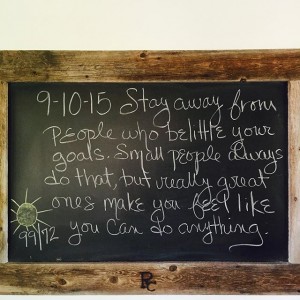 9-10-15 Stay away from
people who belittle your
goals. Small people always
do that, but really great
ones make you feel like
99/72 you can do anything.
PC